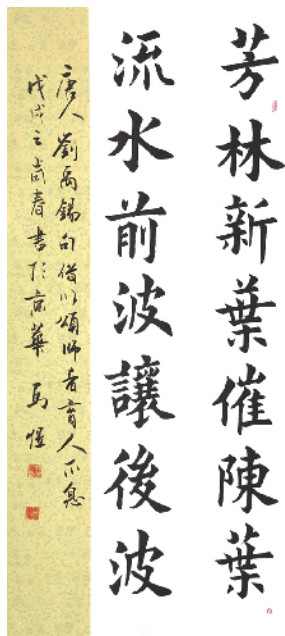 芳林新葉催陳葉
流水前波讓後波
唐人劉禹錫句借以頌師者育人不息
戊戌之春書於京華 馬愷